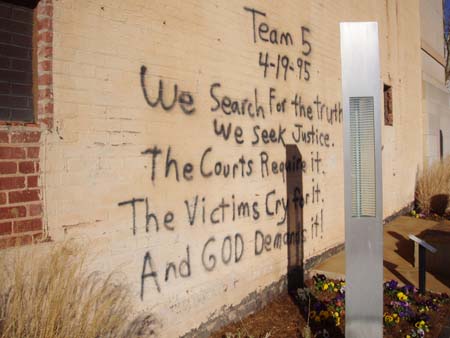 Team 5
4-19-95
We Search For the truth
We seek Justice.
The Courts Require it.
The Victims Cry for It.
And GOD Demands it!